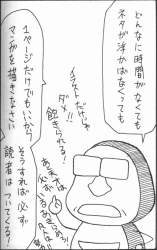 どんなに時間がなくても
ネタが浮かばなくっても
イラストだけじゃ
ダメ!!
飽きられる?
1ページだけでもいいから
マンガを描きなさい
そうすれば必ず
読者はついてくる!